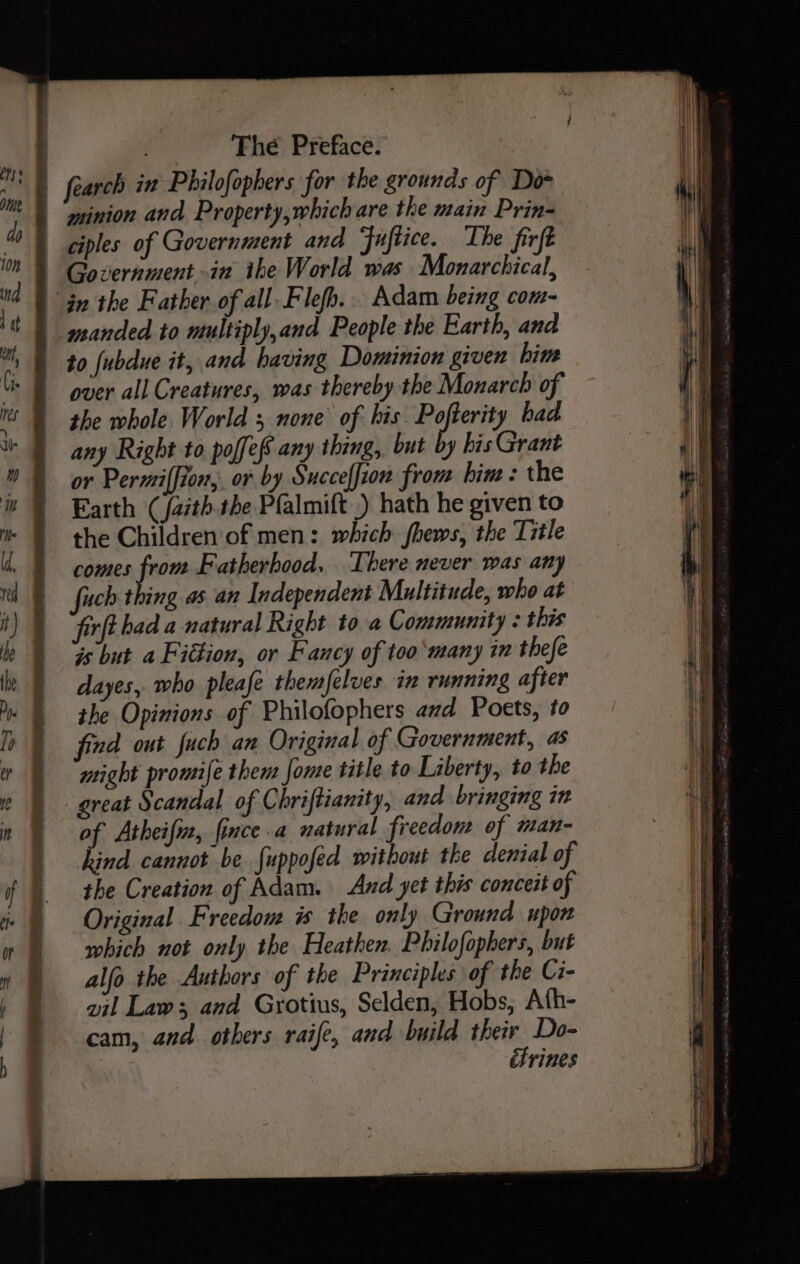 The Preface.
ſearch in Philoſophers for the grounds of Do-
minion and Property, which are the main Prin-
ciples of Government and Juſtice. The firſt
Government in the World was Monarchical,
in the Father of all Fleſh. Adam being com-
manded to multiply, and People the Earth, and
to ſubdue it, and having Dominion given him
over all Creatures, was thereby the Monarch of
the whole World; none of his Poſterity had
any Right to poſſeſs any thing, but by his Grant
or Permiſſion, or by Succeſſion from him: the
Earth (ſaith the Pſalmiſt) hath he given to
the Children of men: which ſhews, the Title
comes from Fatherhood. There never was any
ſuch thing as an Independent Multitude, who at
firſt had a natural Right to a Community: this
is but a Fiction, or Fancy of too many in theſe
dayes, who pleaſe themſelves in running after
the Opinions of Philoſophers and Poets, to
find out ſuch an Original of Government, as
might promiſe them ſome title to Liberty, to the
great Scandal of Chriſtianity, and bringing in
of Atheiſm, ſince a natural freedom of man-
kind cannot be ſuppoſed without the denial of
the Creation of Adam. And yet this conceit of
Original Freedom is the only Ground upon
which not only the Heathen Philoſophers, but
alſo the Authors of the Principles of the Ci-
vil Law; and Grotius, Selden, Hobs, Aſh-
cam, and others raiſe, and build their Do-
ctrines